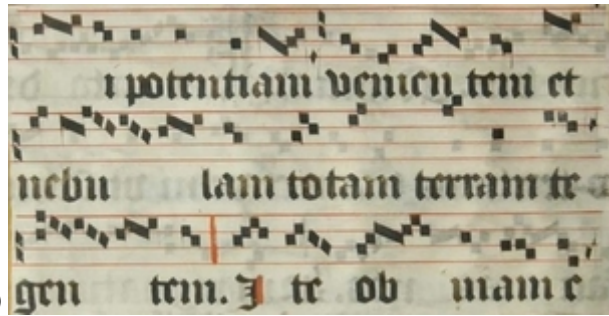 i potentiam venien tem et
nebu lam totam terram te
gen tem. I te ob uiam e